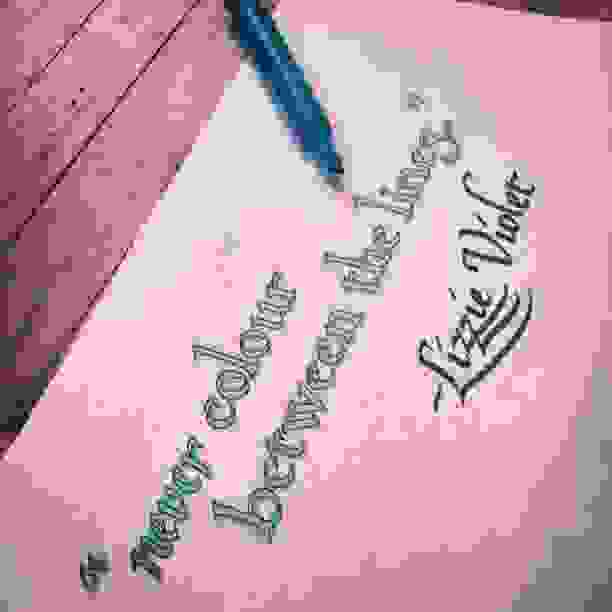 "never colour
between the lines"
-Lizzie Violet